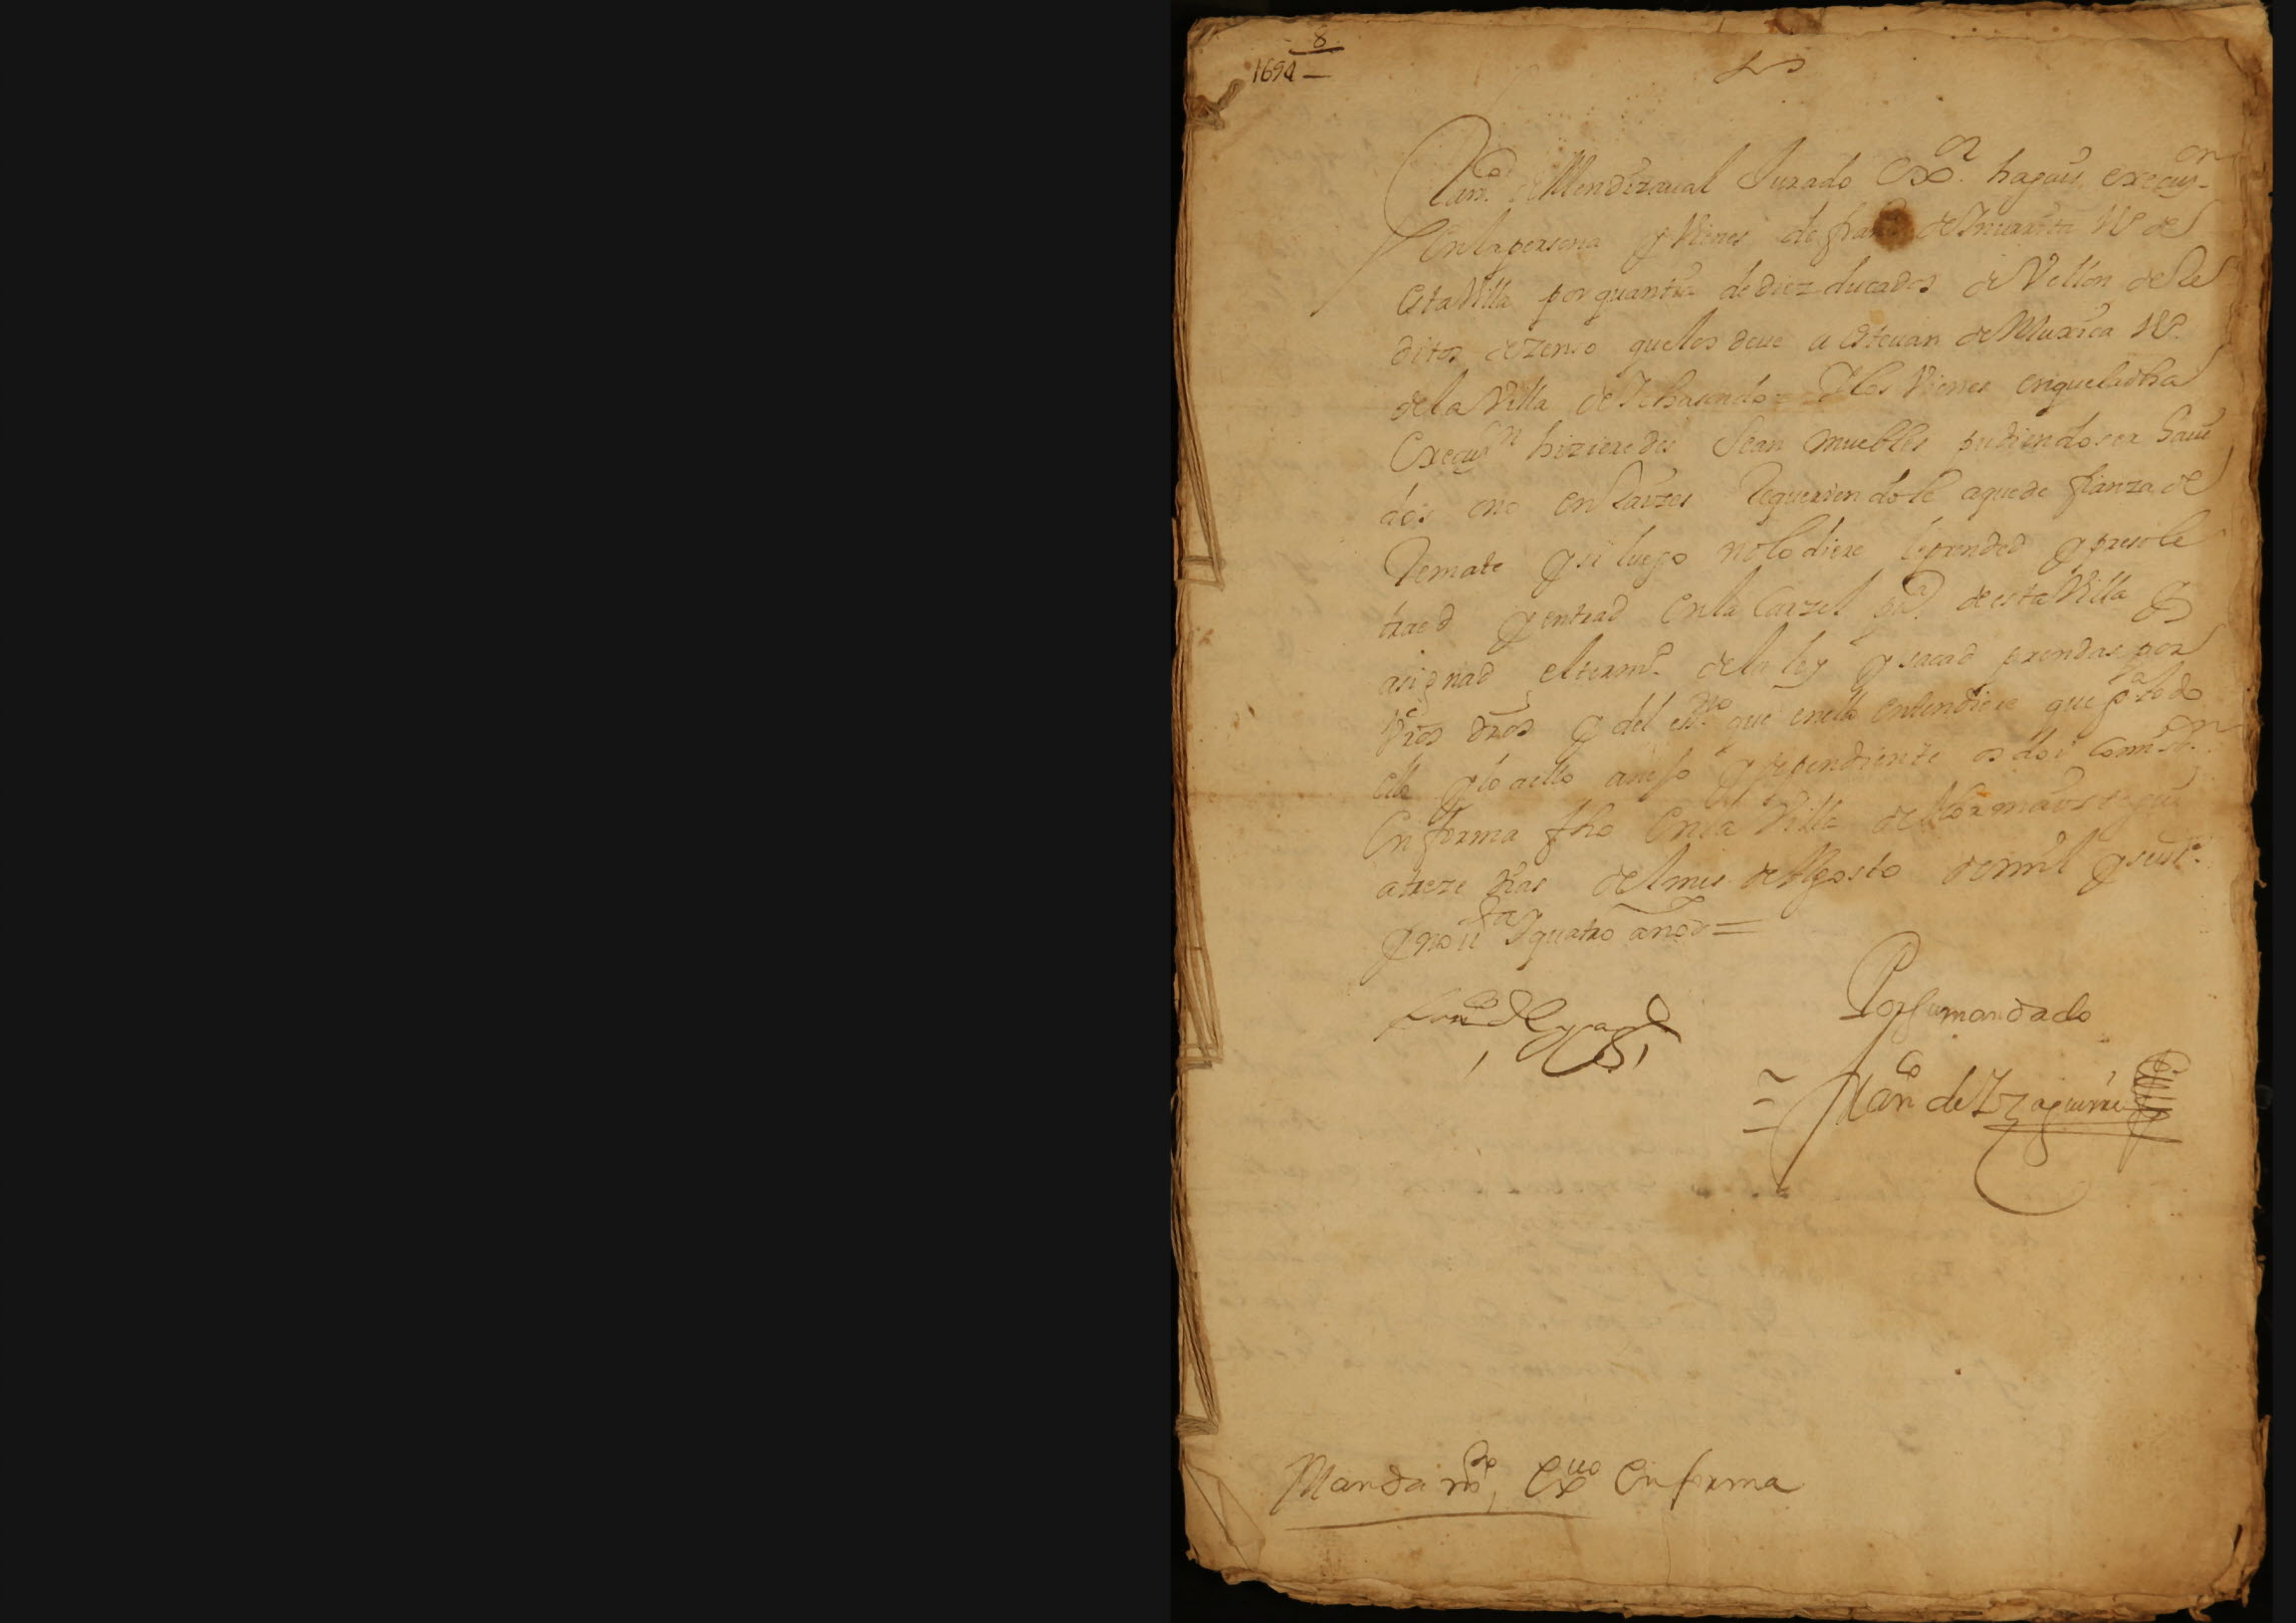 8
1694
Fran.co de Mendizaual Jurado exor. hagais execuz.on
En la persona y Vienes de fran.co de V.o de
Esta Villa por quantia de diez ducados de Vellon de Re
ditos de zenso que les deue a esteuan de Muxica V.o
de la Villa de Ichasondo = Y los Vienes en que la dha
Execuz.n hizieredes Sean muebles pudiendo ser haui
dos o no en Raizes Requeriendole a que de fianza de
Remate y si luego no lo diere le prended y preso le
traed y entrad en la Carzel pu.ca de esta Villa y
asignad el term.o de la ley y sacad prendas por
Vros dros y del es.no que en ello entendiere que p.a todo
ello y lo a ello anejo y dependiente os doi Comis.on
En forma fho En la Villa de Villa
a treze dias del mes de Agosto de mil y seis.s
y nou.ta y quatro años =
Por su mandado
Fran.co de Yzaguirre
Mandam.to ex.uo En forma